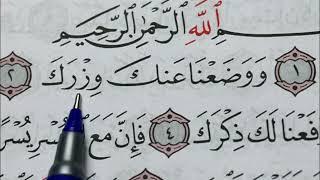 ـسم ٱللَّهِ ٱلرَّحْمَٰنِ ٱلرَّحِيمِ
١ وَوَضَعْنَا عَنكَ وِزْرَكَ ٢
فَعْنَا لَكَ ذِكْرَكَ ٤ فَإِنَّ مَعَ ٱلْعُسْرِ يُسْرًا